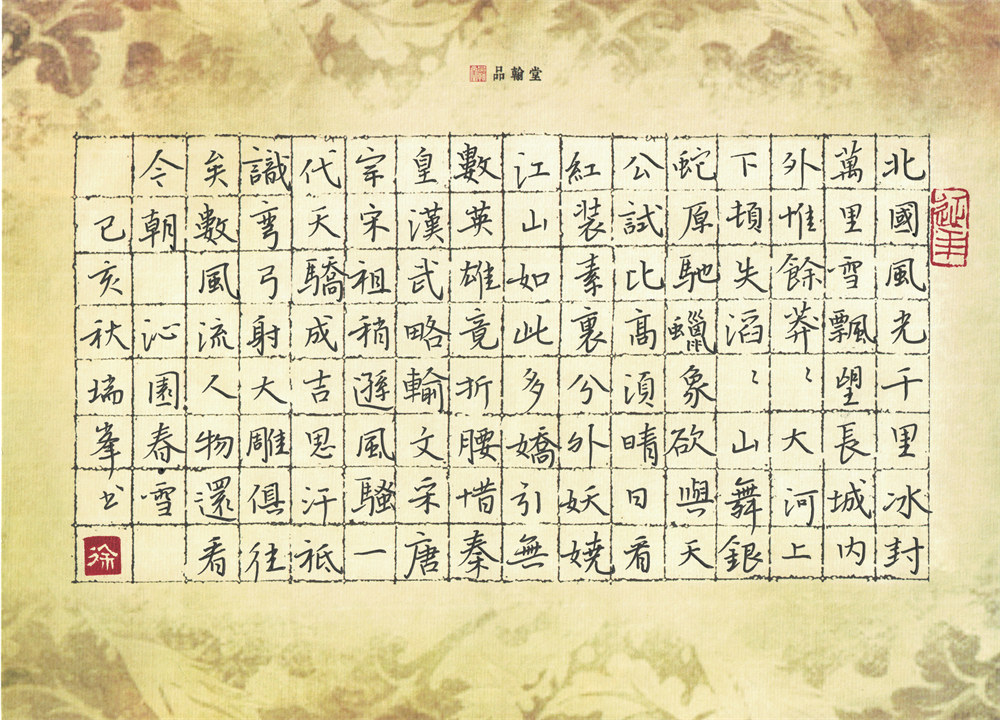 品翰堂
延年
北國風光千里冰封
萬里雪飄望長城内
外惟餘莽〻大河上
下頓失滔〻山舞銀
蛇原馳蠟象欲與天
公試比高須晴日看
紅裝素裹分外妖嬈
江山如此多嬌引無
數英雄竟折腰惜秦
皇漢武略輸文采唐
宗宋祖稍遜風騷一
代天驕成吉思汗祇
識彎弓射大雕俱往
矣數風流人物還看
今朝 沁園春·雪
己亥秋瑞峯书
徐